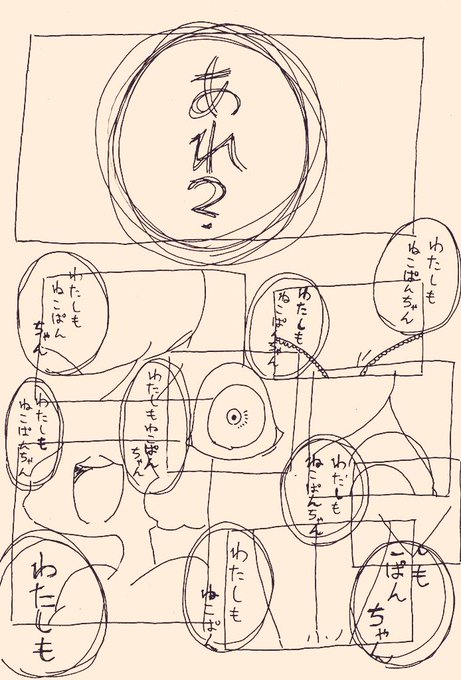 あれ?
わたしも
ねこぱんちゃん
わたしも
ねこぱん
ちゃん
わたしも
ねこぱんちゃん
わたしもねこぱん
ちゃん
わたしも
ねこぱんちゃん
わたしも
ねこぱんちゃん
しも
ぱん
ちゃん
わたしも
ねこぱん
わたしも